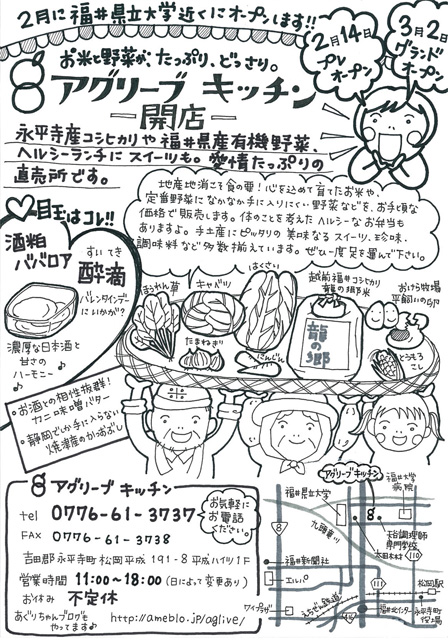 2月に福井県立大学近くにオープンします!!
2月14日
プレ
オープン
3月2日
グランド
オープン
お米と野菜が、たっぷり、どっさり。
アグリーブ キッチン
開店
永平寺産コシヒカリや福井県産有機野菜、
ヘルシーランチに スイーツも。愛情たっぷりの
直売所です。
地産地消こそ食の要!心を込めて育てたお米や、
定番野菜になかなか手に入りにくい野菜などを、お手頃な
価格で販売します。体のことを考えたヘルシーなお弁当も
ありますよ。手土産にピッタリの美味なるスイーツ、珍味、
調味料など多数揃えています。ぜひ一度足を運んで下さい。
目玉はコレ!!
酒粕
ババロア
すいてき
酔滴
バレンタインデー
にいかが?
濃厚な日本酒と
甘さの
ハーモニー♪
・お酒との相性抜群!
カニ味噌バター
・静岡でしか手に入らない
焼津産のかつおぶし
ほうれん草
キャベツ
はくさい
越前福井コシヒカリ
龍の郷米
おけら牧場
平飼いの卵
たまねぎ
にんじん
龍の郷
とうもろ
こし
アグリーブ キッチン
tel 0776-61-3737
FAX 0776-61-3738
お気軽に
お電話
ください。
吉田郡永平寺町松岡平成 191-8 平成ハイツ1F
営業時間 11:00~18:00 (日によって変更あり)
お休み 不定休
あぐりちゃんブログも
やってます♪
http://ameblo.jp/aglive/
アグリーブキッチン
福井県立大学
福井大学
病院
九頭竜川
天谷調理師
専門学校
8
福井新聞社
エルパ
ワイプラザ
えちぜん鉄道
松岡駅
福井北インター
永平寺町
役場